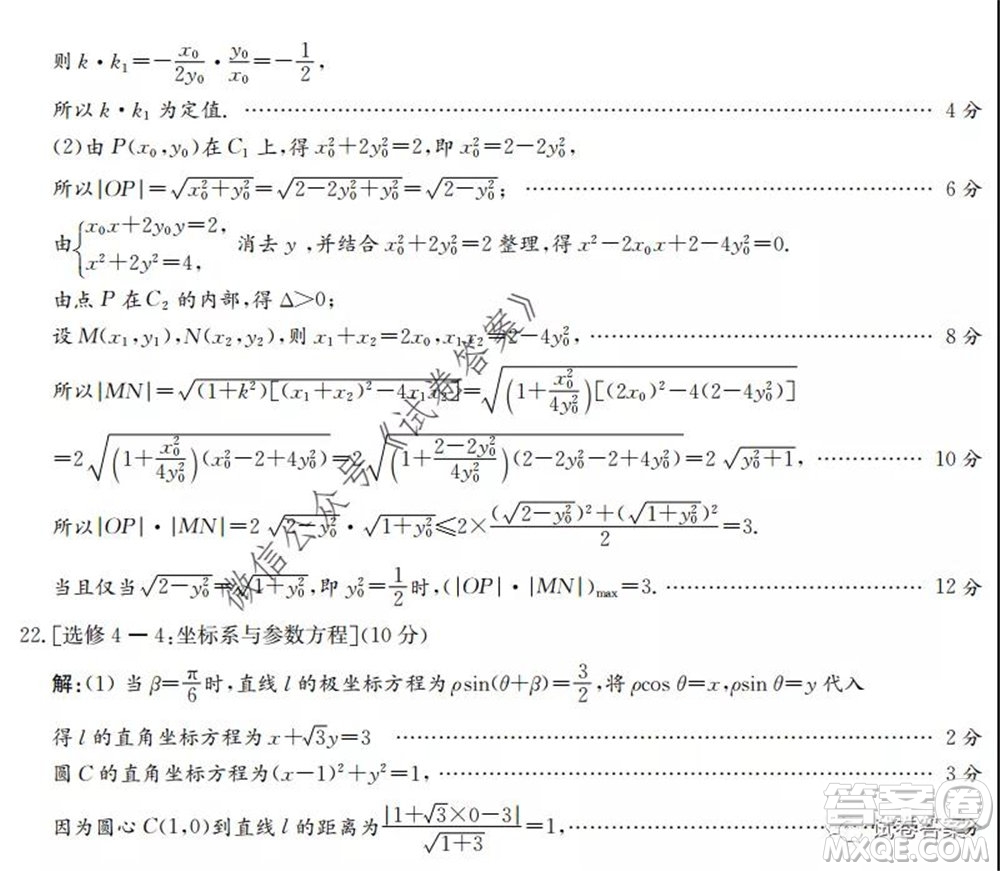 则 k·k₁=−x₀/2y₀·y₀/x₀=−1/2,
所以 k·k₁ 为定值. ………… 4 分
(2)由 P(x₀,y₀)在 C₁ 上,得 x₀²+2y₀²=2,即 x₀²=2−2y₀²,
所以|OP|=√(x₀²+y₀²)=√(2−2y₀²+y₀²)=√(2−y₀²); ………… 6 分
由{x₀x+2y₀y=2, x²+2y²=4, 消去 y ,并结合 x₀²+2y₀²=2 整理,得 x²−2x₀x+2−4y₀²=0.
由点 P 在 C₂ 的内部,得 Δ>0;
设 M(x₁,y₁),N(x₂,y₂),则 x₁+x₂=2x₀,x₁x₂=2−4y₀², ………… 8 分
所以|MN|=√((1+k²)[(x₁+x₂)²−4x₁x₂])=√((1+x₀²/4y₀²)[(2x₀)²−4(2−4y₀²)])
=2√((1+x₀²/4y₀²)(x₀²−2+4y₀²))=2√((1+(2−2y₀²)/4y₀²)(2−2y₀²−2+4y₀²))=2√(y₀²+1), ………… 10 分
所以|OP|·|MN|=2√(2−y₀²)·√(1+y₀²)≤2×((√(2−y₀²))²+(√(1+y₀²))²)/2=3.
当且仅当√(2−y₀²)=√(1+y₀²),即 y₀²=1/2时,(|OP|·|MN|)max=3. ………… 12 分
22.[选修 4－4:坐标系与参数方程](10 分)
解:(1) 当 β=π/6时,直线 l 的极坐标方程为 ρsin(θ+β)=3/2,将 ρcos θ=x,ρsin θ=y 代入
得 l 的直角坐标方程为 x+√3y=3 ………… 2 分
圆 C 的直角坐标方程为(x−1)²+y²=1, ………… 3 分
因为圆心 C(1,0)到直线 l 的距离为|1+√3×0−3|/√(1+3)=1, ………… 分
微信公众号《试卷答案》
答案卷
试卷答案
MXQE.COM